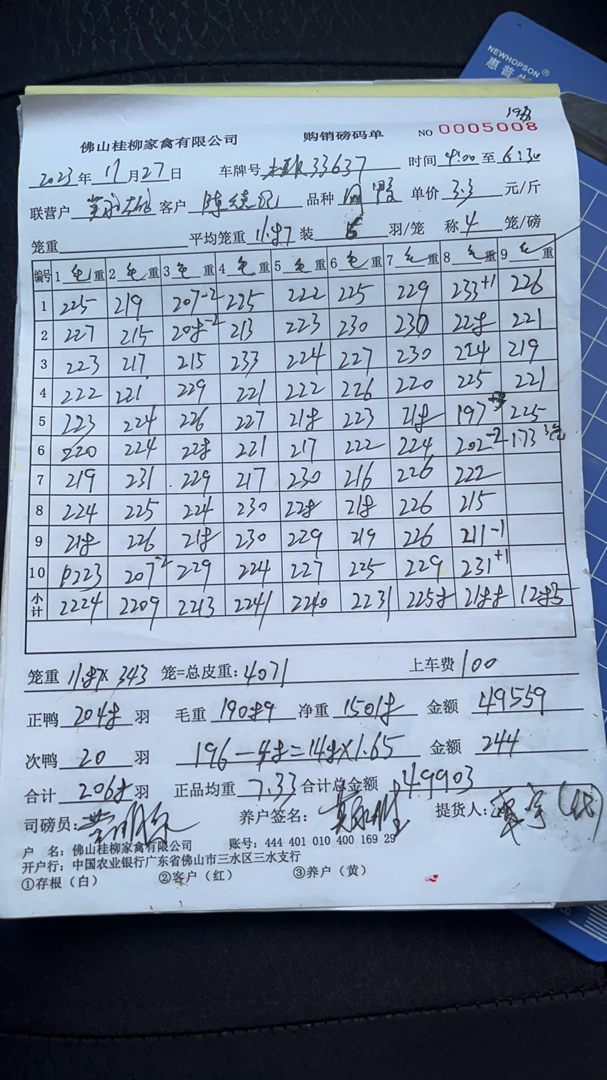 NEWHOPSON®
惠普
佛山桂柳家禽有限公司 购销磅码单 NO 0005008
2023年11月27日 车牌号 33637 时间 4:00 至 6:30
联营户 客户 品种 单价 3.3 元/斤
笼重 平均笼重 11.87 装 6 羽/笼 称 4 笼/磅
编号 1 毛重 2 毛重 3 毛重 4 毛重 5 毛重 6 毛重 7 毛重 8 毛重 9 毛重
1 225 219 207-2 225 222 225 229 233+1 226
2 227 215 208-2 213 223 230 230 228 221
3 223 217 215 233 224 227 230 224 219
4 222 221 229 221 222 226 220 225 221
5 223 224 226 227 218 223 218 197 225
6 220 224 228 221 217 222 224 202-2 173
7 219 231 229 217 230 216 226 222
8 224 225 224 230 228 218 226 215
9 218 226 218 230 229 219 226 211-1
10 223 207-2 229 224 227 225 229 231+1
小计 2224 2209 2213 2241 2240 2231 2258 2188 1285
笼重 11.87×343 笼=总皮重:4071 上车费 100
正鸭 2048 羽 毛重 19089 净重 15018 金额 49559
次鸭 20 羽 196-48=148×1.65 金额 244
合计 2068 羽 正品均重 7.33 合计总金额 49903
司磅员: 养户签名: 提货人:
户 名:佛山桂柳家禽有限公司 账号:444 401 010 400 169 29
开户行:中国农业银行广东省佛山市三水区三水支行
①存根(白) ②客户(红) ③养户(黄)